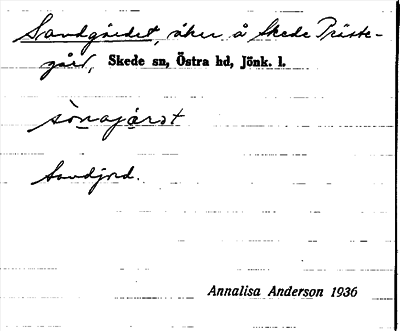 Sandgärdet, åker å Skede Präste-
gård, Skede sn, Östra hd, Jönk. l.
Sandjord.
Annalisa Anderson 1936